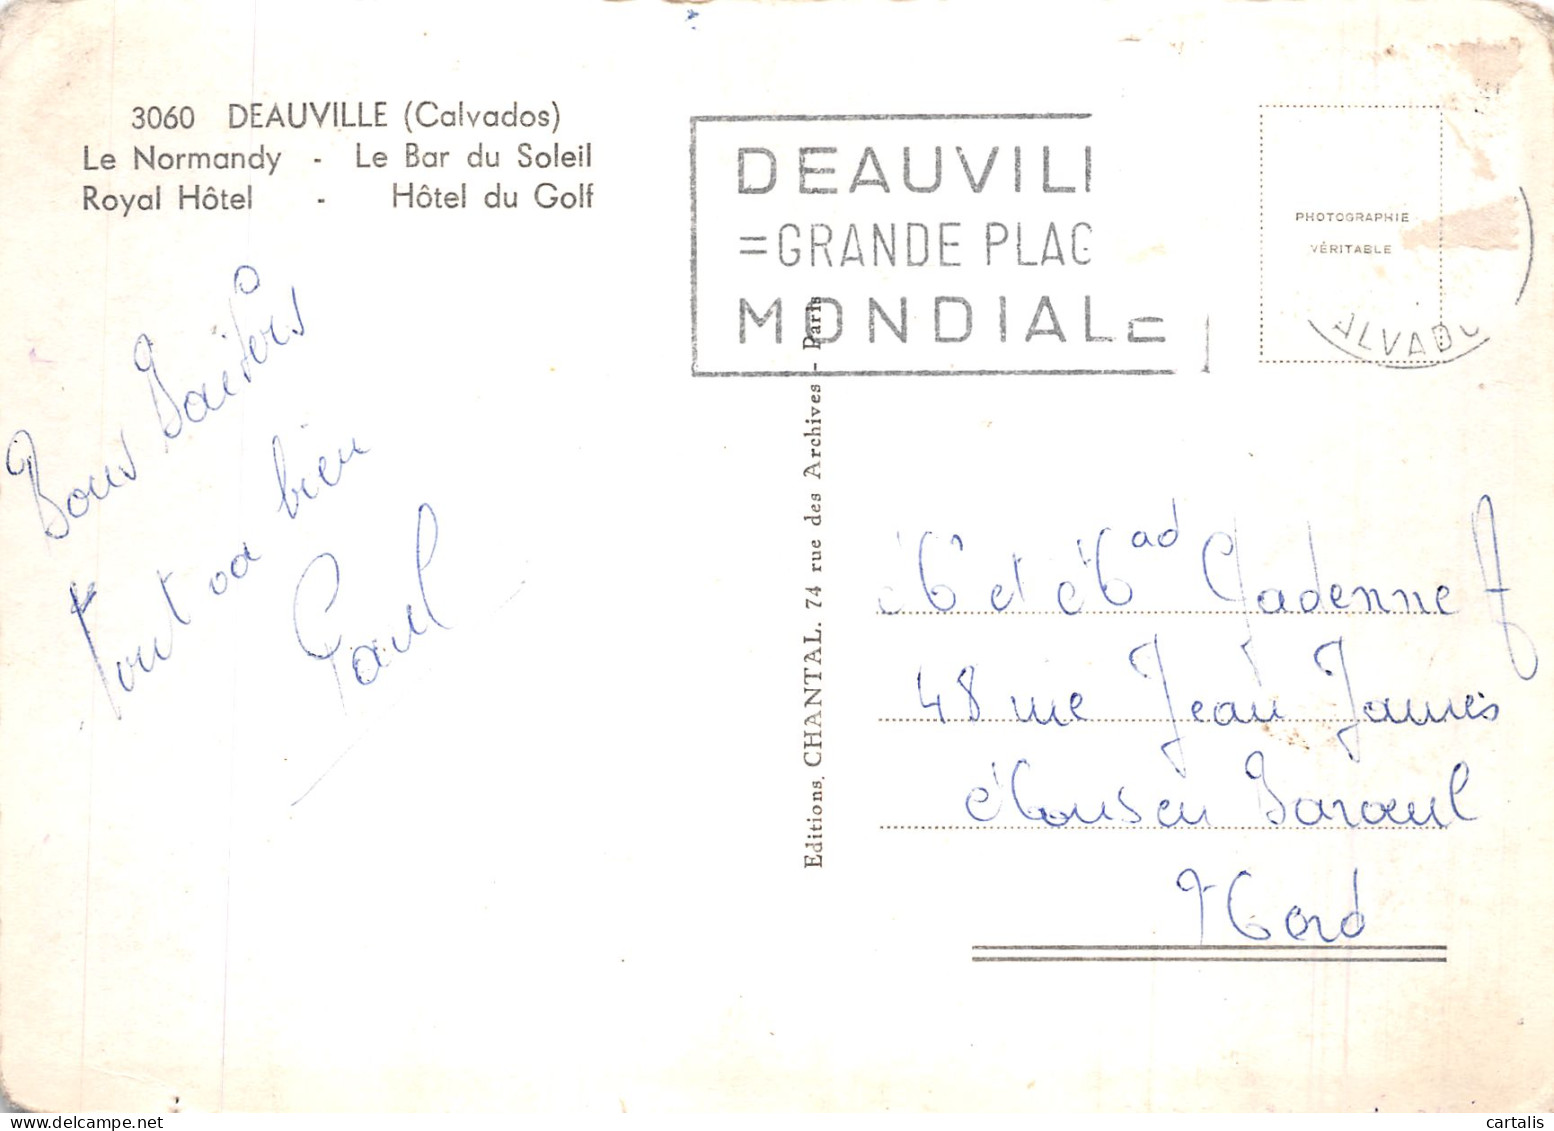 3060 DEAUVILLE (Calvados)
Le Normandy - Le Bar du Soleil
Royal Hôtel - Hôtel du Golf
DEAUVILL
=GRANDE PLAG
MONDIALE
PHOTOGRAPHIE
VÉRITABLE
ALVADO
Bons Baisers
Tout va bien
Paul
Editions CHANTAL. 74 rue des Archives - Paris
M et Mad Cadenne F
48 rue Jean Jaurès
Mons en Baroeul
Nord
cartalis